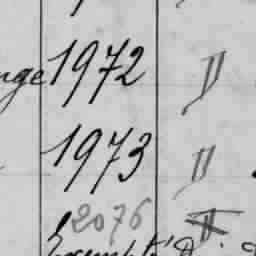 nge 1972 II
1973 II
2076 II
Exempt D.